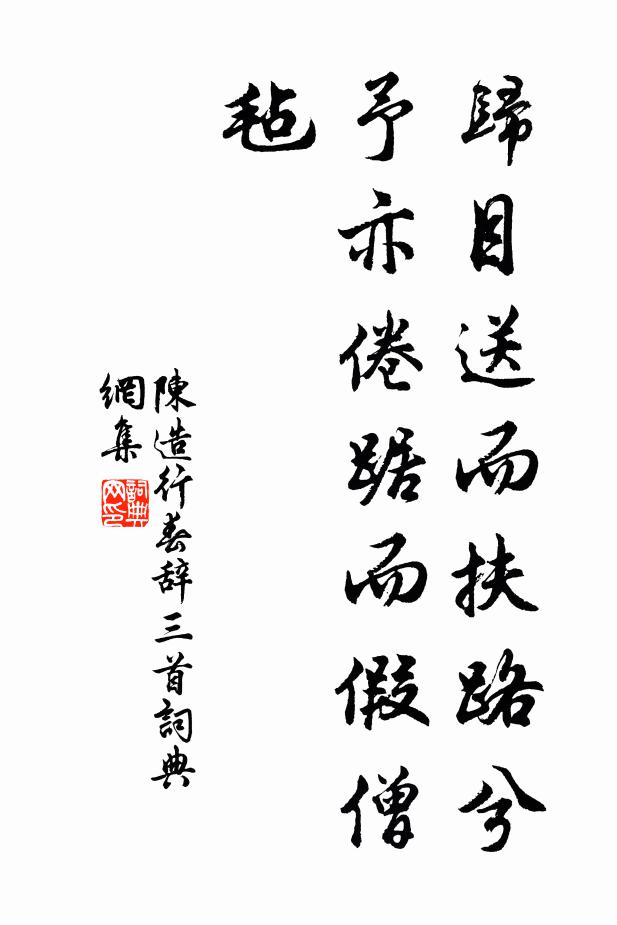 歸目送而扶路兮
予亦倦踞而假僧
毡
陳造行春辞三首詞典
網集
詞典网印